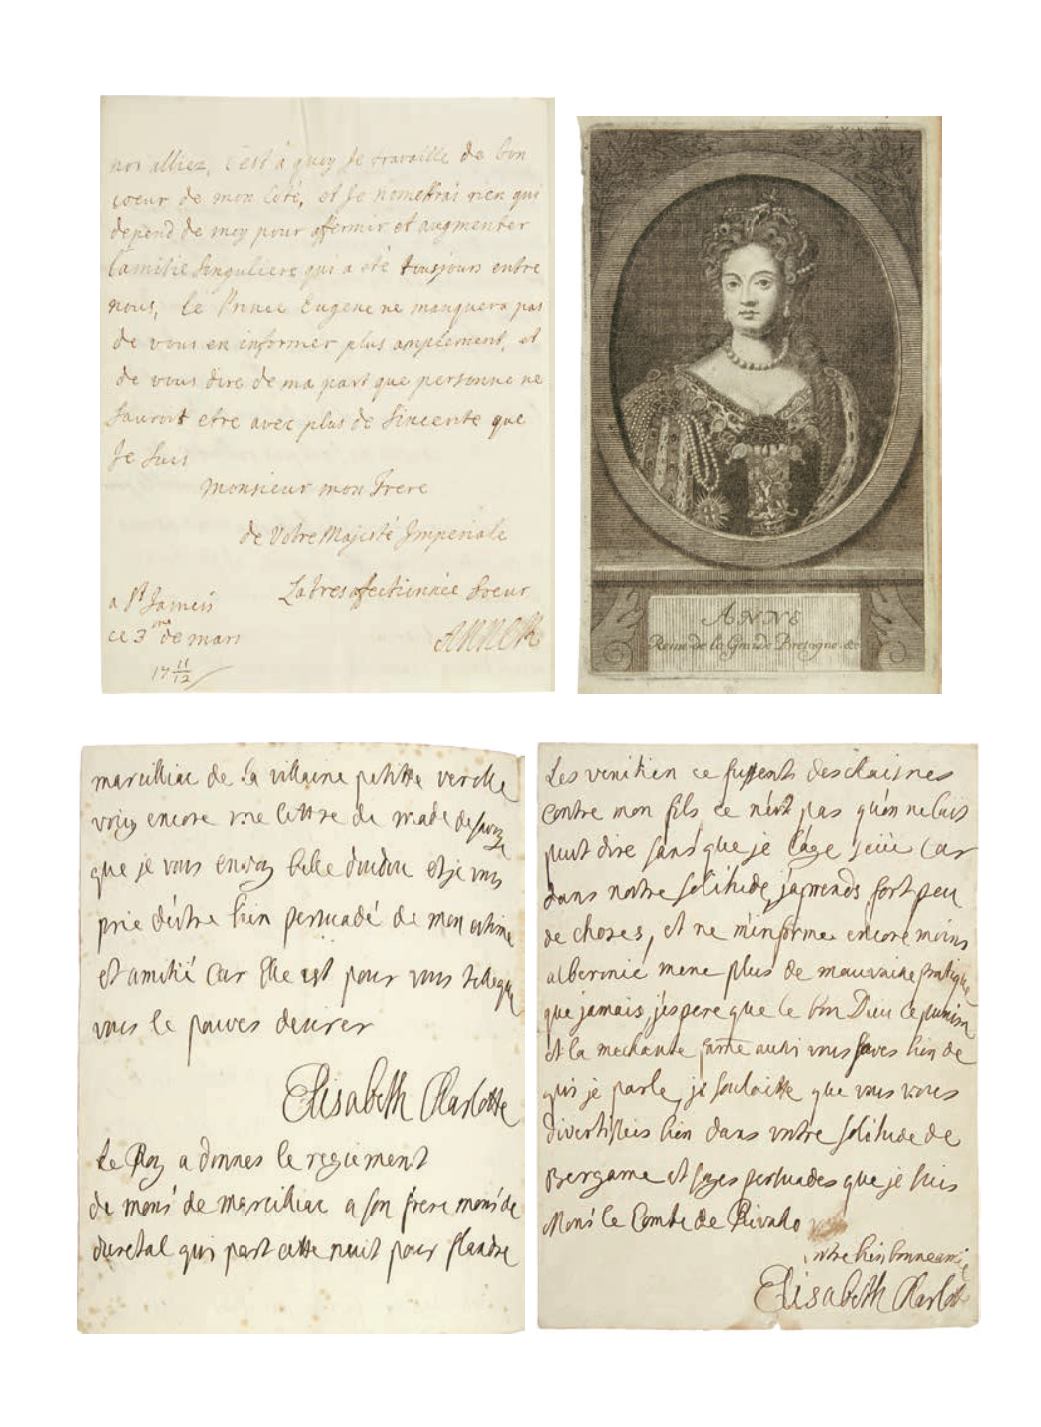 nos alliez, C'est à quoy Je travaille de bon
coeur de mon Côté, et Je n'omettrai rien qui
depend de moy pour affermir et augmenter
l'amitie singuliere qui a été tousjours entre
nous, le Prince Eugene ne manquera pas
de vous en informer plus amplement, et
de vous dire de ma part que personne ne
sauroit etre avec plus de Sincerite que
Je Suis
Monsieur mon Frere
de Votre Majesté Imperiale
La tres affectionnée Soeur
a St Jameis
ce 3me de mars
17 11/12
ANNE R
ANNE
Reine de la Grande Bretagne. &c
marcilliac de la villaine petitte verolle
voicy encore une lettre de made de savoye
que je vous envoy belle doudou et je vous
prie d'estre bien persuadé de mon estime
et amitié car Elle est pour vous telle que
vous le pouves desirer
Elisabeth Charlotte
Le Roy a donnes le regiement
de monsr de marcilliac a son frere monsr de
duretal qui part cette nuit pour flandre
Les venitien ce fussents deschaisnes
contre mon fils ce n'est pas qu'on ne laist
peut dire sans que je l'age sceue car
dans nostre solitude j'aprends fort peu
de choses, et ne m'informe encore moins
alberonie mene plus de mauvaise pratique
que jamais, j'espere que le bon Dieu le punira
et la mechante fame aussi vous saves bien de
qui je parle, je souhaitte que vous vous
divertissies bien dans vostre solitude de
Bergame et soyes persuades que je suis
Monsr le Comte de
vostre bien bonne amie
Elisabeth Charlotte